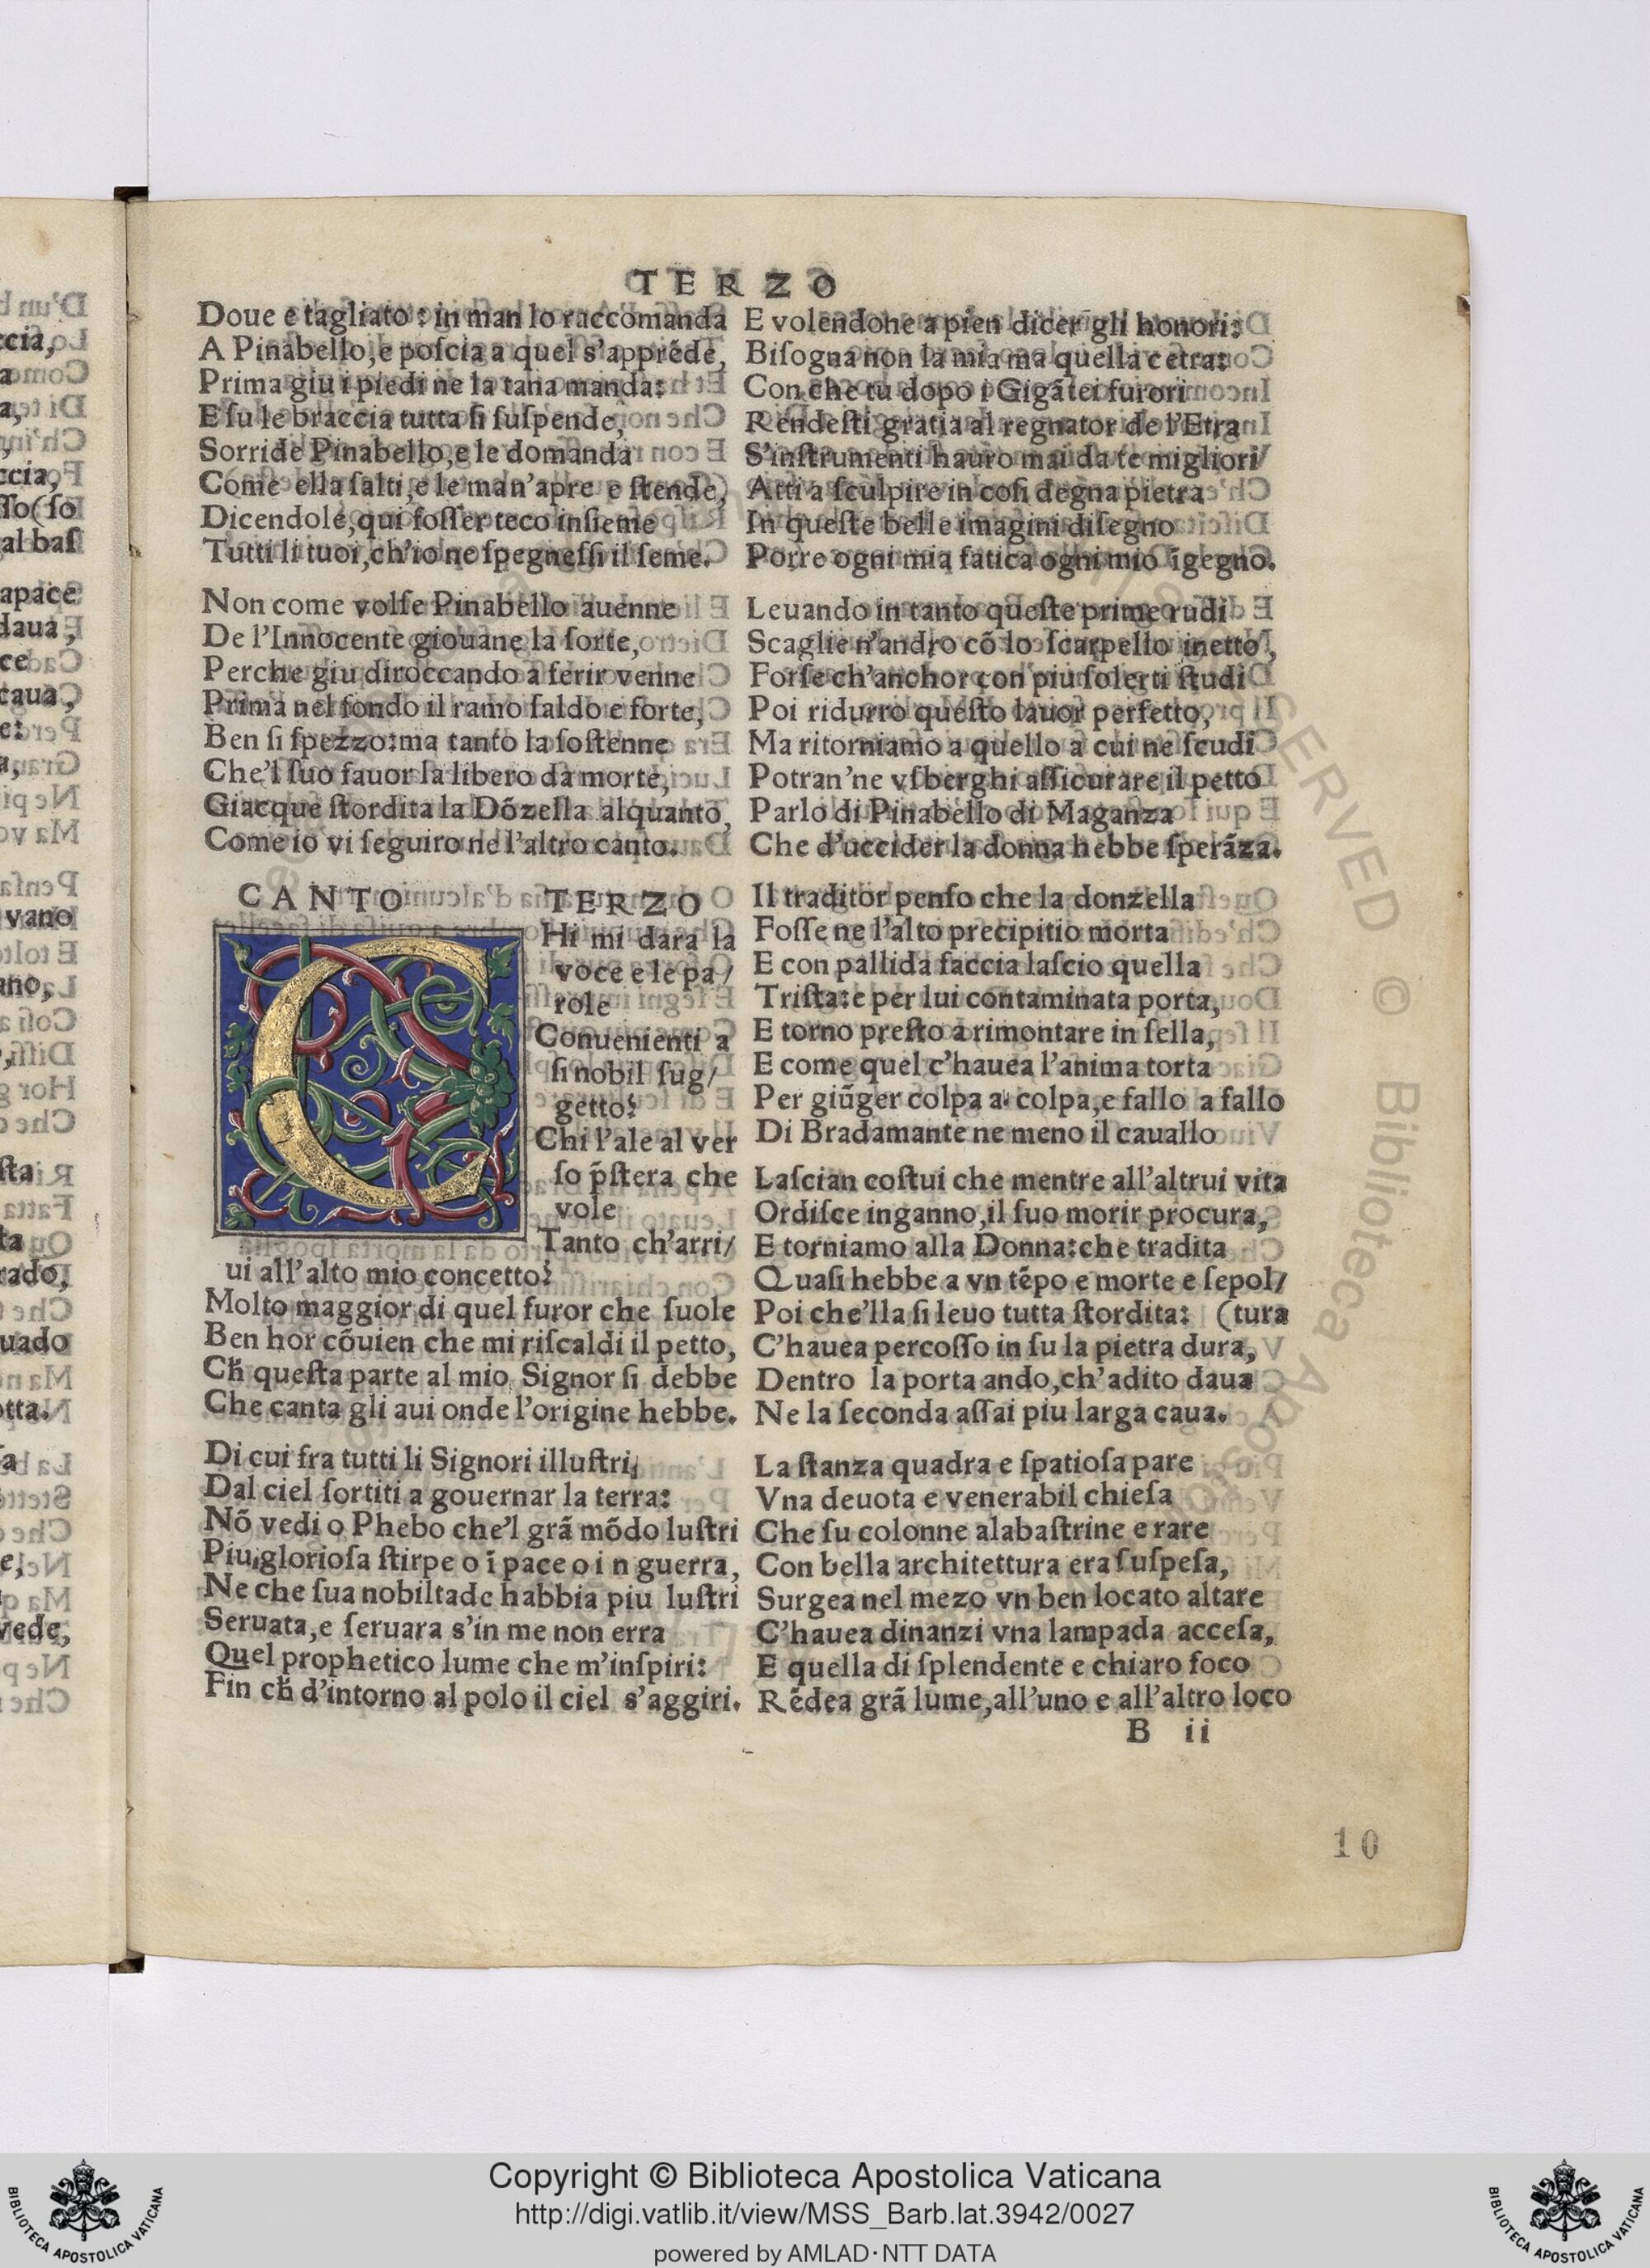 TERZO
Doue e tagliato : in man lo raccomanda
A Pinabello, e poſcia a quel s'appréde,
Prima giu i piedi ne la tana manda:
E ſu le braccia tutta ſi ſuſpende,
Sorride Pinabello, e le domanda
Come ella ſalti, e le man'apre e ſtende,
Dicendole, qui foſſer teco inſieme
Tutti li tuoi, ch'io ne ſpegneſſi il ſeme.
Non come volſe Pinabello auenne
De l'Innocente giouane la ſorte,
Perche giu diroccando a ferir venne
Prima nel fondo il ramo ſaldo e forte,
Ben ſi ſpezzo:ma tanto la ſoſtenne
Che'l ſuo fauor la libero da morte,
Giacque ſtordita la Dõzella alquanto,
Come io vi ſeguiro ne l'altro canto.
CANTO TERZO
CHi mi dara la
voce e le pa/
role
Conuenienti a
ſi nobil ſug/
getto?
Chi l'ale al ver
ſo p̃ſtera che
vole
Tanto ch'arri/
ui all'alto mio concetto?
Molto maggior di quel furor che ſuole
Ben hor cõuien che mi riſcaldi il petto,
Ch̃ queſta parte al mio Signor ſi debbe
Che canta gli aui onde l'origine hebbe.
Di cui fra tutti li Signori illuſtri,
Dal ciel ſortiti a gouernar la terra:
Nõ vedi o Phebo che'l grã mõdo luſtri
Piu glorioſa ſtirpe o ĩ pace o i n guerra,
Ne che ſua nobiltade habbia piu luſtri
Seruata, e ſeruara s'in me non erra
Quel prophetico lume che m'inſpiri:
Fin ch̃ d'intorno al polo il ciel s'aggiri.
E volendone a pien dicer gli honori:
Biſogna non la mia ma quella cetra:
Con che tu dopo i Gigãtei furori
Rendeſti gratia al regnator de l'Etra
S'inſtrumenti hauro mai da te migliori
Atti a ſculpire in coſi degna pietra
In queſte belle imagini diſegno
Porre ogni mia fatica ogni mio ĩgegno.
Leuando in tanto queſte prime rudi
Scaglie n'andro cõ lo ſcarpello inetto,
Forſe ch'anchor con piu ſolerti ſtudi
Poi ridurro queſto lauor perfetto,
Ma ritorniamo a quello a cui ne ſcudi
Potran'ne vſberghi aſſicurare il petto
Parlo di Pinabello di Maganza
Che d'uccider la donna hebbe ſperãza.
Il traditor penſo che la donzella
Foſſe ne l'alto precipitio morta
E con pallida faccia laſcio quella
Triſta:e per lui contaminata porta,
E torno preſto a rimontare in ſella,
E come quel c'hauea l'anima torta
Per giũger colpa a colpa, e fallo a fallo
Di Bradamante ne meno il cauallo
Laſcian coſtui che mentre all'altrui vita
Ordiſce inganno, il ſuo morir procura,
E torniamo alla Donna:che tradita
Quaſi hebbe a vn tẽpo e morte e ſepol/
Poi che'lla ſi leuo tutta ſtordita: (tura
C'hauea percoſſo in ſu la pietra dura,
Dentro la porta ando, ch'adito daua
Ne la ſeconda aſſai piu larga caua.
La ſtanza quadra e ſpatioſa pare
Vna deuota e venerabil chieſa
Che ſu colonne alabaſtrine e rare
Con bella architettura era ſuſpeſa,
Surgea nel mezo vn ben locato altare
C'hauea dinanzi vna lampada acceſa,
E quella di ſplendente e chiaro foco
Rẽdea grã lume, all'uno e all'altro loco
B ii
10
Copyright © Biblioteca Apostolica Vaticana
http://digi.vatlib.it/view/MSS_Barb.lat.3942/0027
powered by AMLAD·NTT DATA
BIBLIOTECA APOSTOLICA VATICANA
BIBLIOTECA APOSTOLICA VATICANA